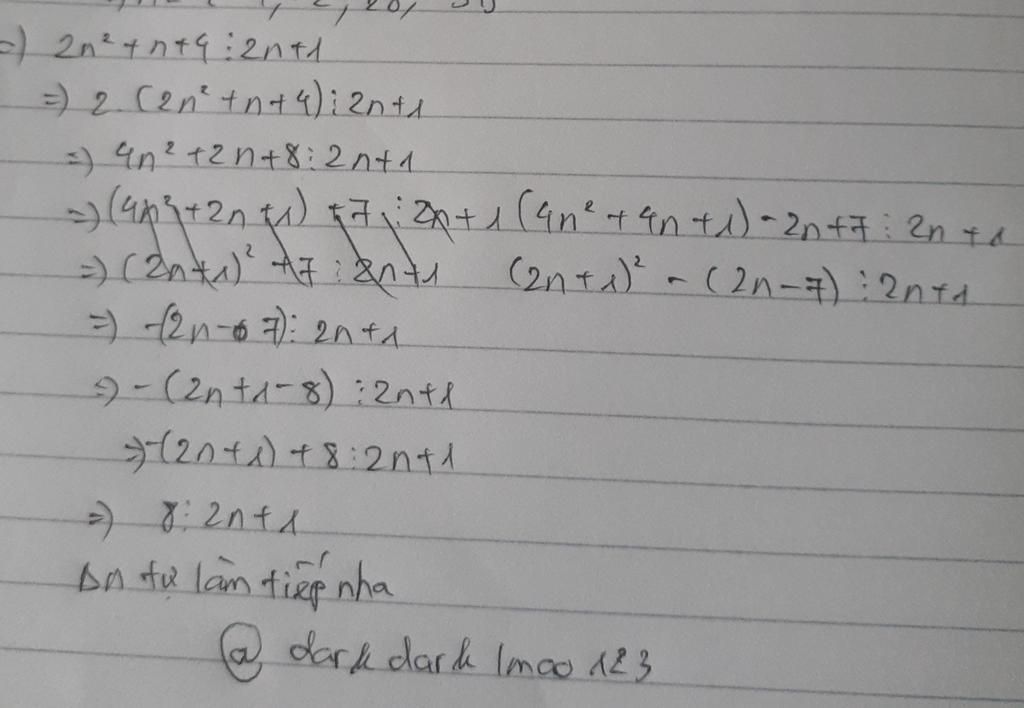 =) 2n² + n + 4 ⋮ 2n + 1
=) 2. (2n² + n + 4) ⋮ 2n + 1
=) 4n² + 2n + 8 ⋮ 2n + 1
=) (4n² + 2n + 1) + 7 ⋮ 2n + 1 (4n² + 4n + 1) - 2n + 7 ⋮ 2n + 1
=) (2n + 1)² + 7 ⋮ 2n + 1 (2n + 1)² - (2n - 7) ⋮ 2n + 1
=) -(2n - 7) ⋮ 2n + 1
=) - (2n + 1 - 8) ⋮ 2n + 1
=) -(2n + 1) + 8 ⋮ 2n + 1
=) 8 ⋮ 2n + 1
bn tự làm tiếp nha
@ dark dark lmao 123